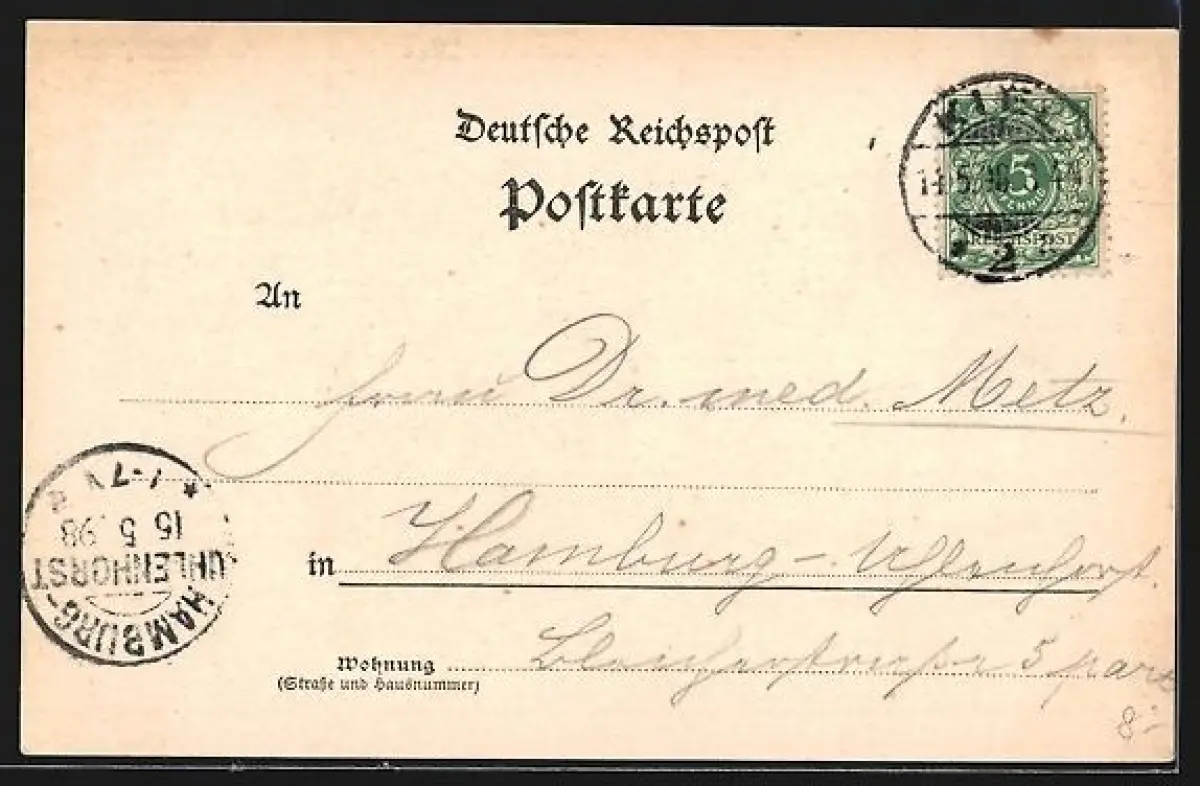 Deutsche Reichspost
Postkarte
KIEL
14.5.98
2
5
PFENNIG
REICHSPOST
An
Dr. med. Metz.
in Hamburg-Uhlenhorst.
Wohnung
(Straße und Hausnummer)
5 part
HAMBURG-
UHLENHORST
15 5 98
1-7V
8